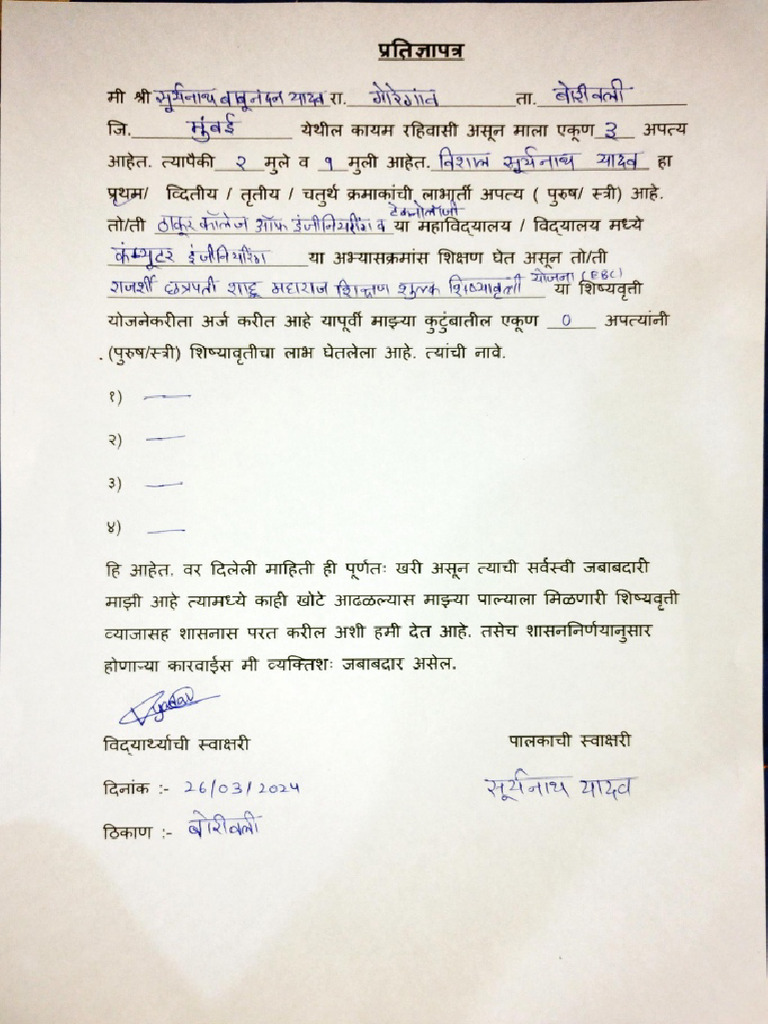 प्रतिज्ञापत्र
मी श्री सूर्यनाथ बाबूनंदन यादव रा. गोरेगांव ता. बोरीवली
जि. मुंबई येथील कायम रहिवासी असून माला एकूण ३ अपत्य
आहेत. त्यापैकी २ मुले व १ मुली आहेत. विशाल सूर्यनाथ यादव हा
प्रथम/ व्दितीय / तृतीय / चतुर्थ क्रमाकांची लाभार्ती अपत्य ( पुरुष/ स्त्री) आहे.
तो/ती ठाकूर कॉलेज ऑफ इंजीनियरींग व टेक्नोलॉजी या महाविद्यालय / विद्यालय मध्ये
कंम्प्यूटर इंजीनियरिंग या अभ्यासक्रमांस शिक्षण घेत असून तो/ती
राजर्शी छत्रपती शाहू महाराज शिक्षण शुल्क शिष्यावृत्ती योजना (EBC) या शिष्यवृती
योजनेकरीता अर्ज करीत आहे यापूर्वी माझ्या कुटुंबातील एकूण 0 अपत्यांनी
.(पुरुष/स्त्री) शिष्यावृतीचा लाभ घेतलेला आहे. त्यांची नावे.
१) —
२) —
३) —
४) —
हि आहेत. वर दिलेली माहिती ही पूर्णतः खरी असून त्याची सर्वस्वी जबाबदारी
माझी आहे त्यामध्ये काही खोटे आढळल्यास माझ्या पाल्याला मिळणारी शिष्यवृती
व्याजासह शासनास परत करील अशी हमी देत आहे. तसेच शासननिर्णयानुसार
होणाऱ्या कारवाईस मी व्यक्तिशः जबाबदार असेल.
विद्यार्थ्याची स्वाक्षरी पालकाची स्वाक्षरी
दिनांक :- 26/03/2024 सूर्यनाथ यादव
ठिकाण :- बोरीवली